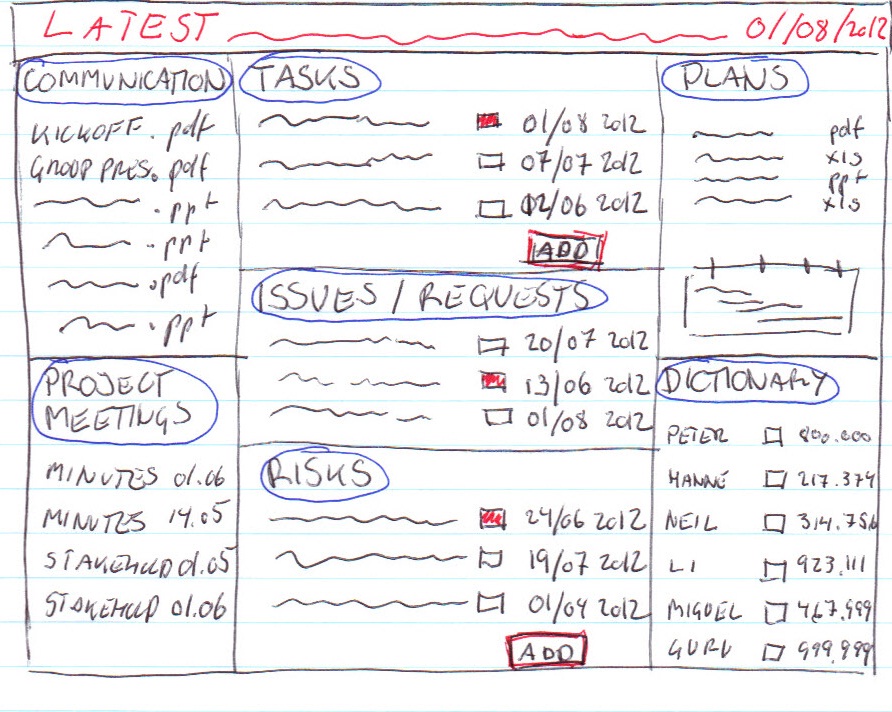 LATEST 01/08/2012
COMMUNICATION
KICKOFF.pdf
GROUP PRES.pdf
.ppt
.ppt
.pdf
.ppt
PROJECT
MEETINGS
MINUTES 01.06
MINUTES 14.05
STAKEHLD 01.05
STAKEHLD 01.06
TASKS
01/08 2012
07/07 2012
02/06 2012
ADD
ISSUES / REQUESTS
20/07 2012
13/06 2012
01/08 2012
RISKS
24/06 2012
19/07 2012
01/04 2012
ADD
PLANS
pdf
xls
ppt
xls
DICTIONARY
PETER 800.000
HANNE 217.374
NEIL 314.756
LI 923.111
MIGUEL 467.999
GURU 999.999